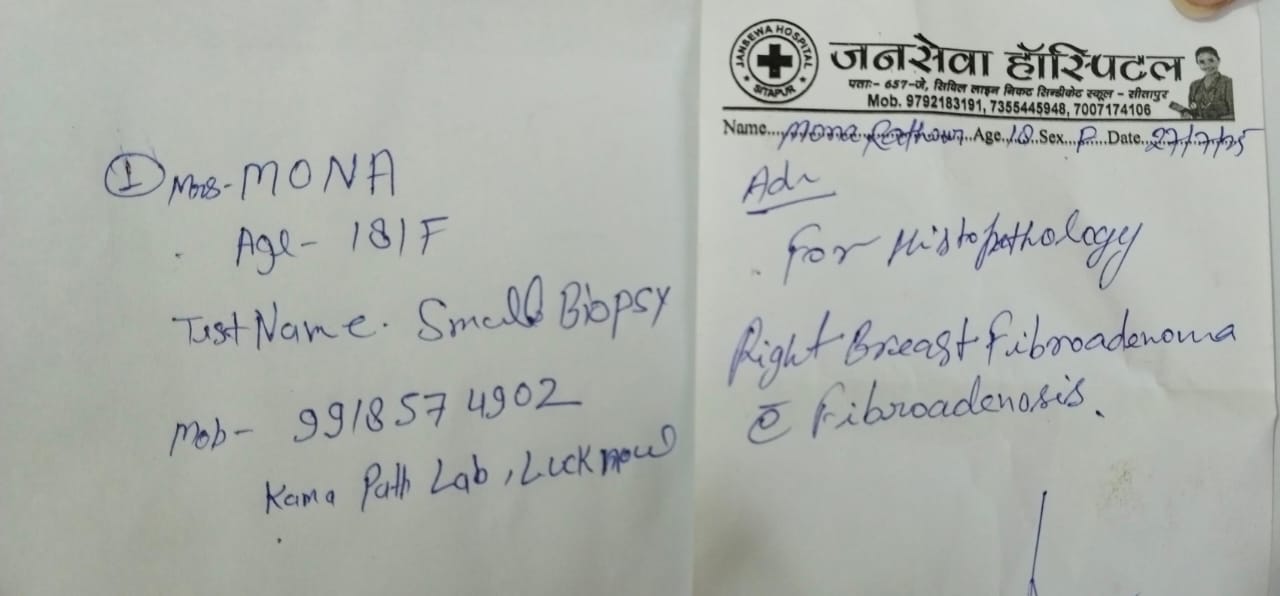 ① Mrs-MONA
Age- 18/F
Test Name. Small Biopsy
Mob- 9918574902
Kama Path Lab, Lucknow
JANSEWA HOSPITAL
SITAPUR
जनसेवा हॉस्पिटल
पताः- 657-जे, सिविल लाइन निकट सिन्डीकेट स्कूल - सीतापुर
Mob. 9792183191, 7355445948, 7007174106
Name....Mona Rathour..Age.18.Sex..F...Date..27/7/25
Adv
For Histopathology
Right Breast Fibroadenoma
c̄ Fibroadenosis.